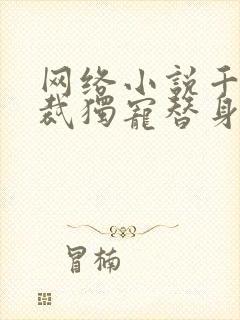 网络小説千
裁獨寵替身
冒楠